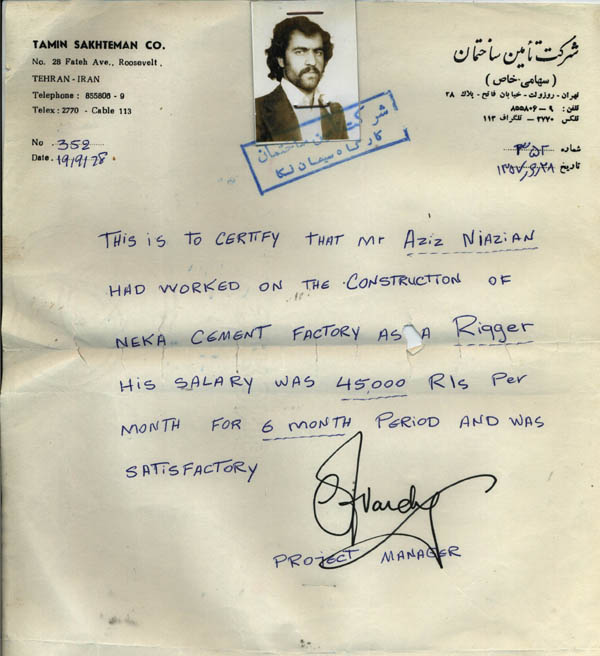 TAMIN SAKHTEMAN CO.
No. 28 Fateh Ave., Roosevelt.
TEHRAN - IRAN
Telephone: 855806 - 9
Telex: 2770 - Cable 113
No 352
Date. 19/9/28
شرکت تأمین ساختمان
(سهامی خاص)
تهران - روزولت - خیابان فاتح - پلاک ۲۸
تلفن: ۹ - ۸۵۵۸۰۶
تلکس ۲۷۷۰ - تلگراف ۱۱۳
شماره ۳۵۲
تاریخ
شرکت تأمین ساختمان
کارگاه سیمان نکا
THIS IS TO CERTIFY THAT Mr AZIZ NIAZIAN
HAD WORKED ON THE CONSTRUCTION OF
NEKA CEMENT FACTORY AS A Rigger
HIS SALARY WAS 45,000 Rls Per
MONTH FOR 6 MONTH PERIOD AND WAS
SATISFACTORY
PROJECT MANAGER